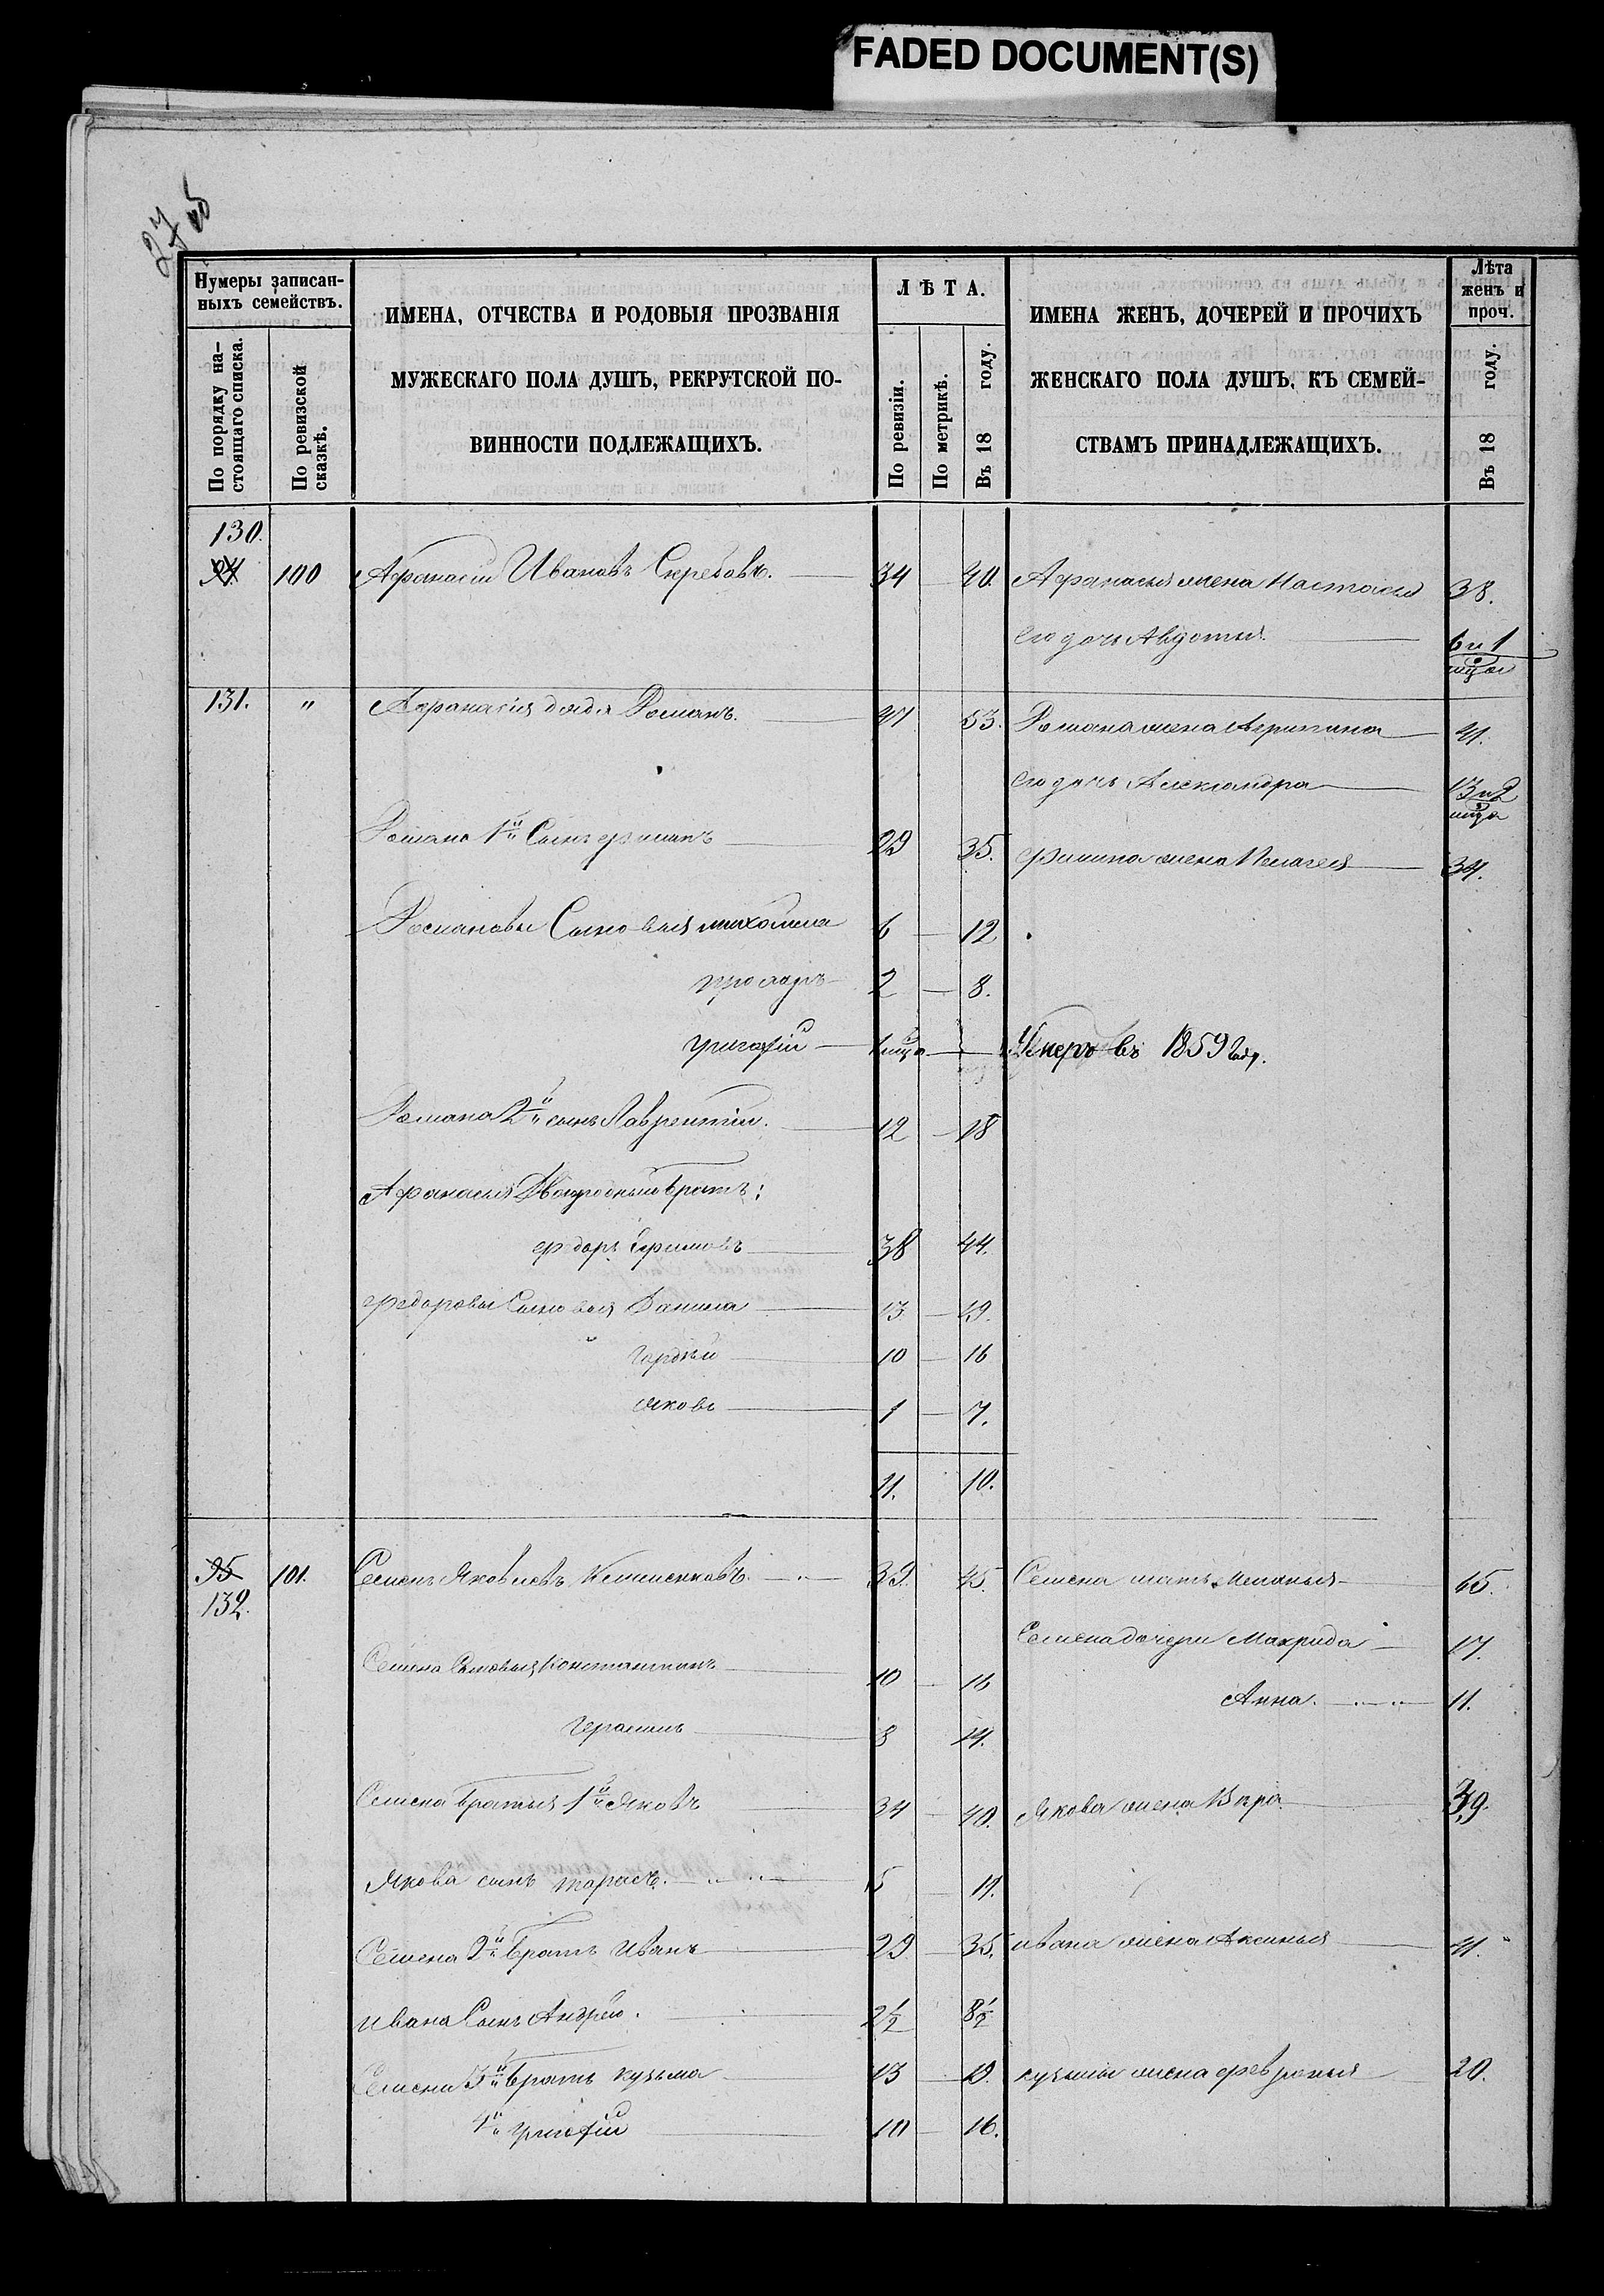 FADED DOCUMENT(S)
Нумеры записан-
ныхъ семействъ.
По порядку на-
стоящаго списка.
По ревизской
сказкѣ.
ИМЕНА, ОТЧЕСТВА И РОДОВЫЯ ПРОЗВАНІЯ
МУЖЕСКАГО ПОЛА ДУШЪ, РЕКРУТСКОЙ ПО-
ВИННОСТИ ПОДЛЕЖАЩИХЪ.
ЛѢТА.
По ревизіи.
По метрикѣ.
Въ 18 году.
ИМЕНА ЖЕНЪ, ДОЧЕРЕЙ И ПРОЧИХЪ
ЖЕНСКАГО ПОЛА ДУШЪ, КЪ СЕМЕЙ-
СТВАМЪ ПРИНАДЛЕЖАЩИХЪ.
Лѣта
женъ и
проч.
Въ 18 году.
130.
94 100 Афанасій Ивановъ 34 40. Афанасья жена Настасья 38.
его дочь Авдотья 6 и 1
131. " Афанасія дядя Романъ. 47 53. Романа жена Агрипина 41.
его дочь Александра 13 и 2
Романа 1й Сынъ филипъ 29 35. филипа жена Пелагея 34.
Романовы Сыновья михайла 6 12
2 8.
григорій Умеръ въ 1859 году.
Романа 2й сынъ Лаврентій. 12 18
Афанасья Двоюродный братъ:
федоръ Ефимовъ 38 44.
федоровы Сыновья Данила 13 19.
Гордѣй 10 16
яковъ 1 7.
11. 10.
95 101. Семенъ Яковлевъ 39. 45. Семена мать Меланья 65.
132.
Семена дочери Макрида 17.
Семена Сыновья Константинъ 10 16
Анна. 11.
Герасимъ 8 14.
Семена братья 1й Яковъ 34 40. Якова жена 39.
Якова сынъ тарасъ. 5 11.
Семена 2й братъ Иванъ 29 35. ивана жена Аксинья 41.
ивана Сынъ Андрей. 2½ 8½
Семена 3й братъ кузьма 13 19. кузьмы жена февронья 20.
4й григорій 10 16.